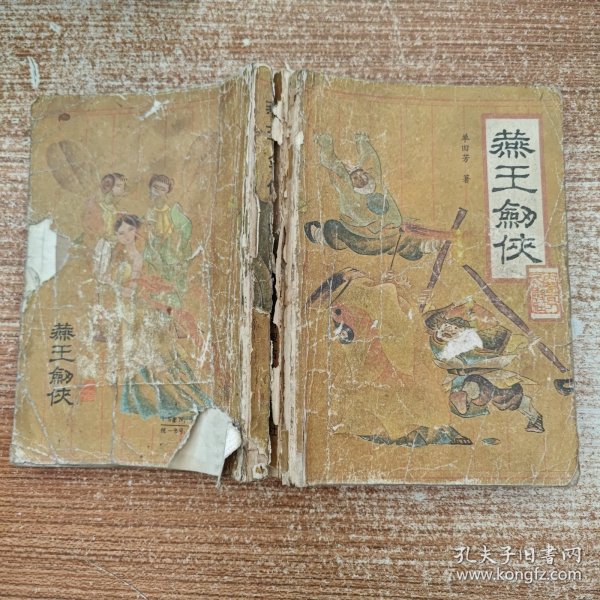 燕王劍俠
单田芳 著
燕王劍俠
孔夫子旧书网
www.kongfz.com